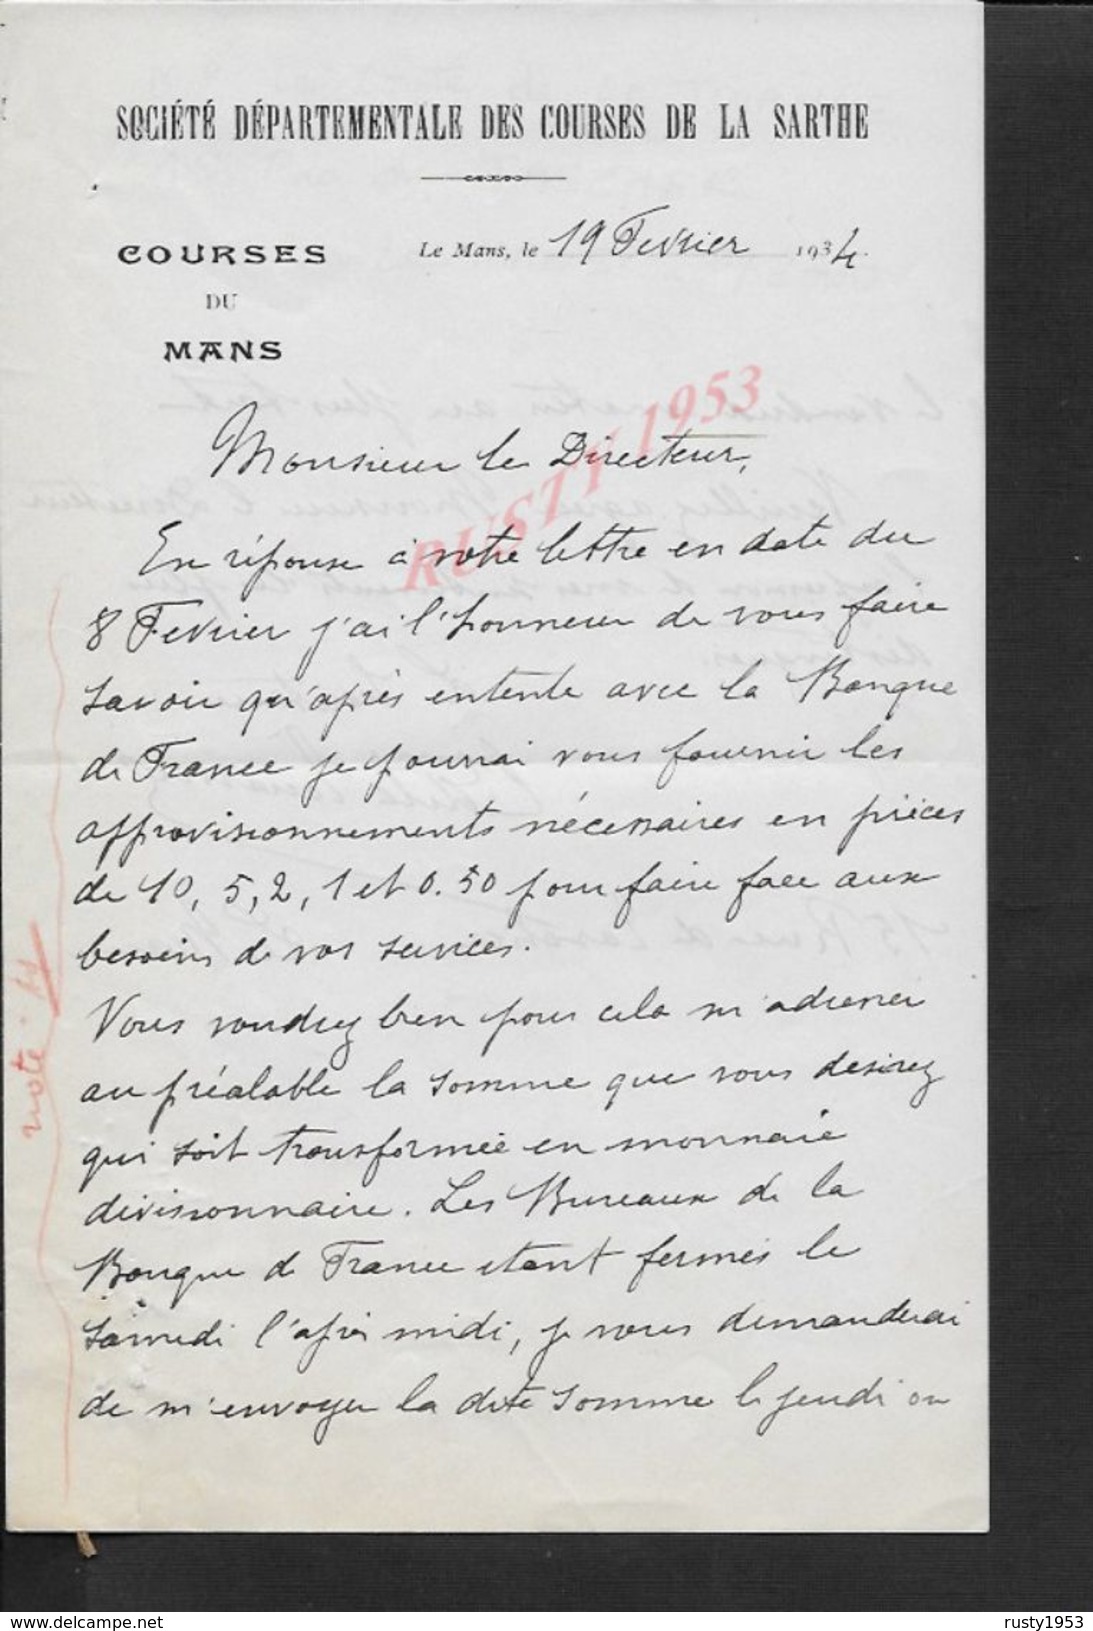 SOCIÉTÉ DÉPARTEMENTALE DES COURSES DE LA SARTHE
COURSES
DU
MANS
Le Mans, le 19 Fevrier 1934.
RUSTY 1953
Monsieur le Directeur,
En réponse à votre lettre en date du
8 Fevrier j'ai l'honneur de vous faire
savoir qu'après entente avec la Banque
de France je pourrai vous fournir les
approvisionnements nécessaires en pièces
de 10, 5, 2, 1 et 0.50 pour faire face aux
besoins de vos services.
Vous voudrez bien pour cela m'adresser
au préalable la somme que vous desirez
qui soit transformée en monnaie
divisionnaire. Les Bureaux de la
Banque de France etant fermés le
samedi l'après midi, je vous demanderai
de m'envoyer la dite somme le jeudi ou
noté
delcampe.net
rusty1953